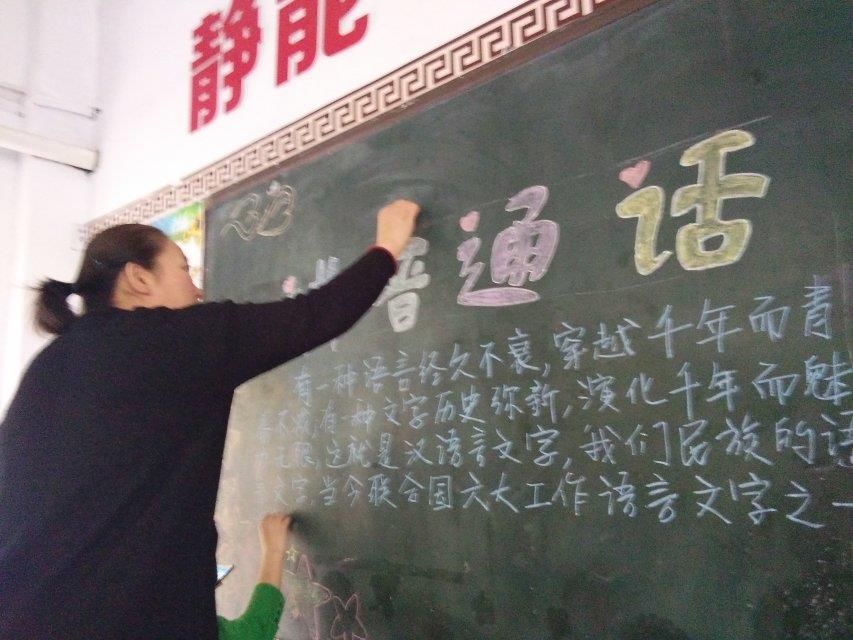 静能
普通话
有一种语言经久不衰,穿越千年而青
春不败,有一种文字历史弥新,演化千年而魅
力无限,这就是汉语言文字,我们民族的语
言文字,当今联合国六大工作语言文字之一